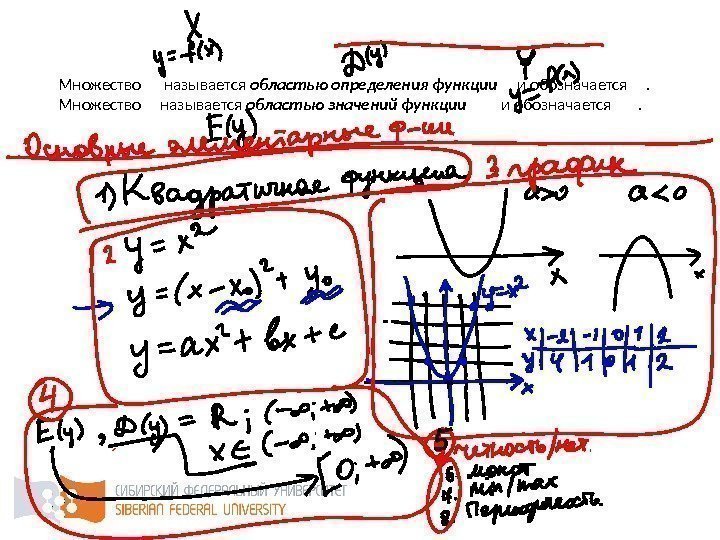 X
y=f(x)
D(y)
Y
y=f(x)
Множество называется областью определения функции и обозначается .
Множество называется областью значений функции и обозначается .
E(y)
Основные элементарные ф-ии
1) Квадратичная функция
3 график
a>0 a<0
x x
2 y = x²
y = (x-x₀)² + y₀
y = ax² + bx + c
y=x²
x -2 -1 0 1 2
y 4 1 0 1 2
x
4
E(y), D(y) = R; (-∞; +∞)
x∈(-∞; +∞)
[0; +∞)
5 четность/неч.
6. монот
7. min/max
8. Периодичность
СИБИРСКИЙ ФЕДЕРАЛЬНЫЙ УНИВЕРСИТЕТ
SIBERIAN FEDERAL UNIVERSITY